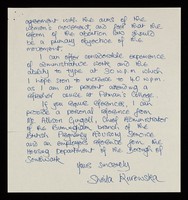 agreement with the aims of the
women's movement, and feel that the
reform of the abortion law should
be a primary objective of the
movement.
I can offer considerable experience
of administrative work and the
ability to type at 30 w.p.m. which
I hope soon to increase to 60 w.p.m
as I am at present attending a
refresher course at Pitman's College.
If you require references, I can
provide a personal reference from
Mr. Allison Cundall, Chief Administrator
of the Birmingham branch of the
British Pregnancy Advisory Service
and an employer's reference from the
Housing Department of the Borough of
Southwark.
Yours sincerely,
Sheila